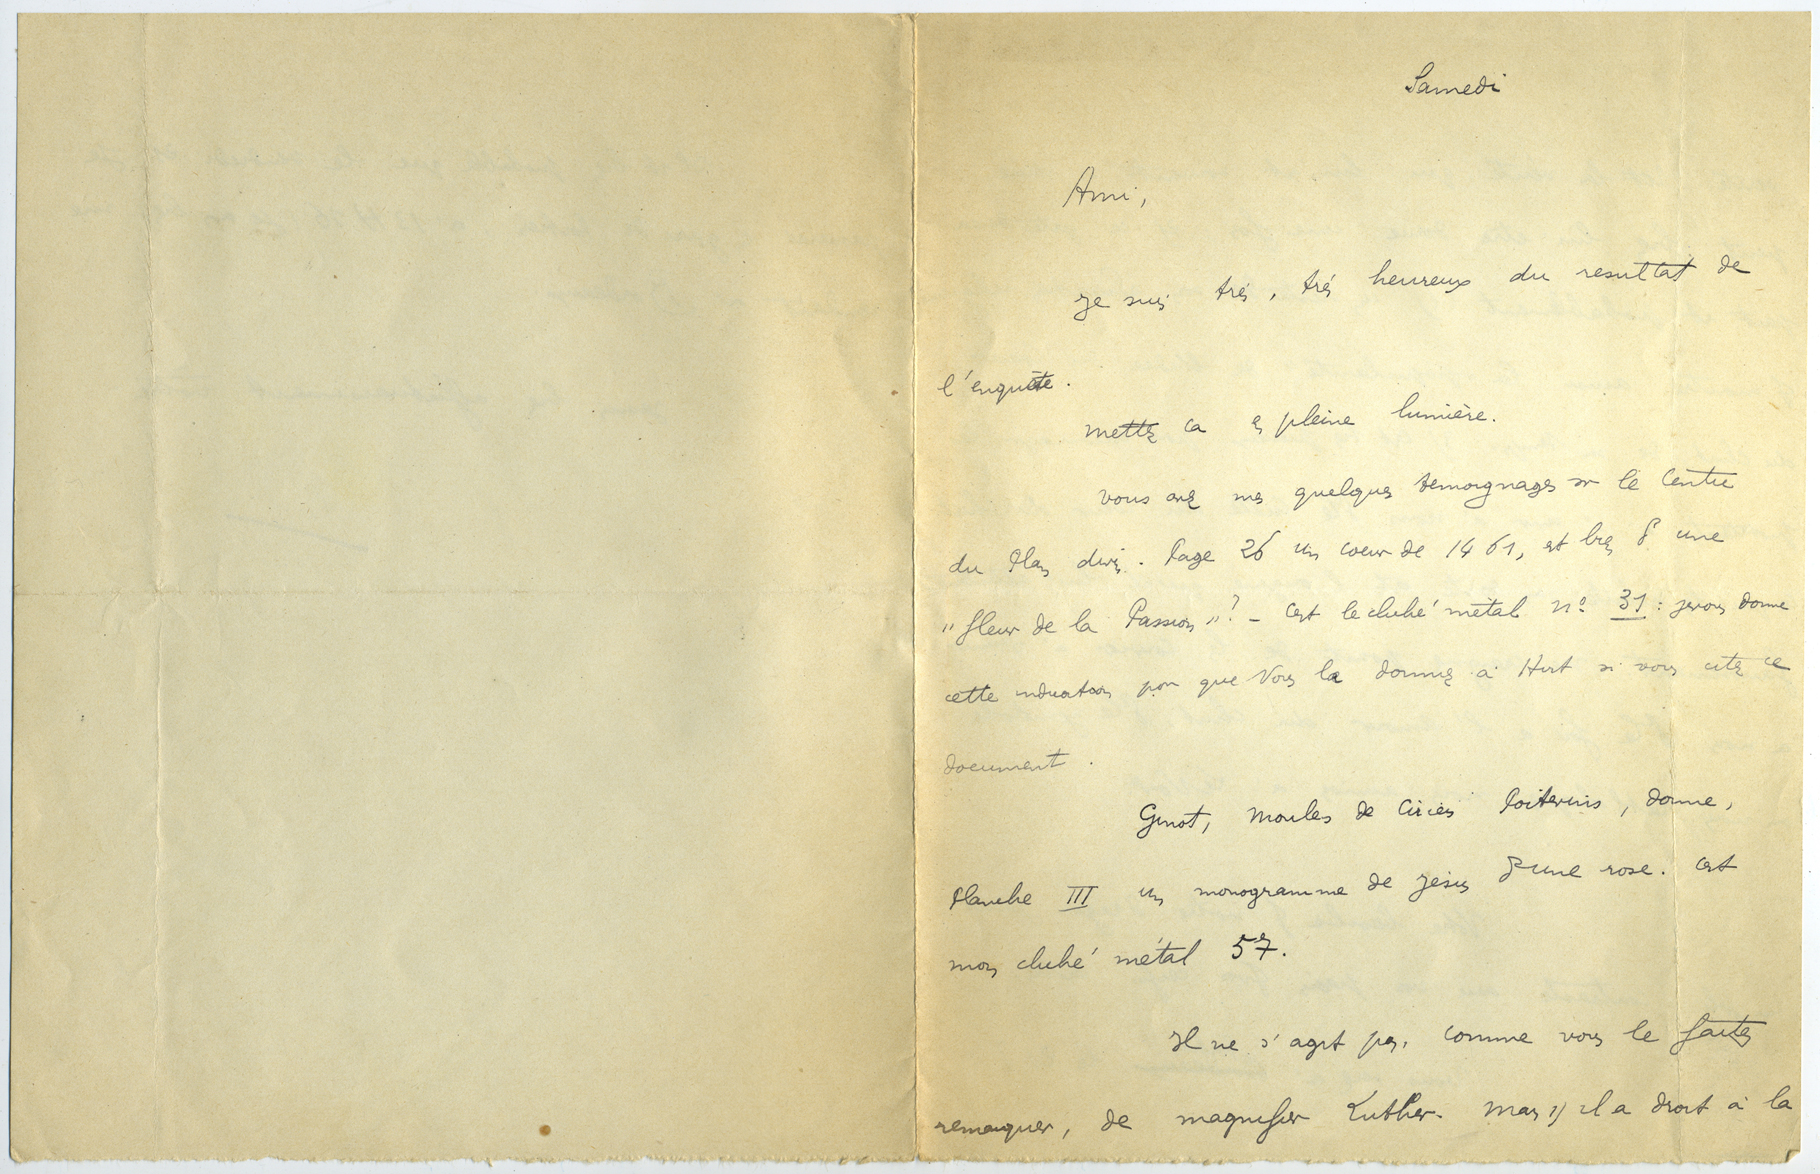 Samedi
Ami,
Je suis très, très heureux du resultat de
l'enquête.
Mettez ca en pleine lumière.
Vous avez mes quelques temoignages sur le Centre
du Plan divin. Page 26 un coeur de 1461, et une
"fleur de la Passion"? - C'est le cliché métal nº 31 : je vous donne
cette indication pour que vous la donniez à si vous citez ce
document.
Ginot, Moules de Ciriers Poitevins, donne,
Planche III un monogramme de Jésus d'une rose. C'est
mon cliché métal 57.
Il ne s'agit pas, comme vous le faites
remarquer, de magnifier Luther. Mais il a droit à la